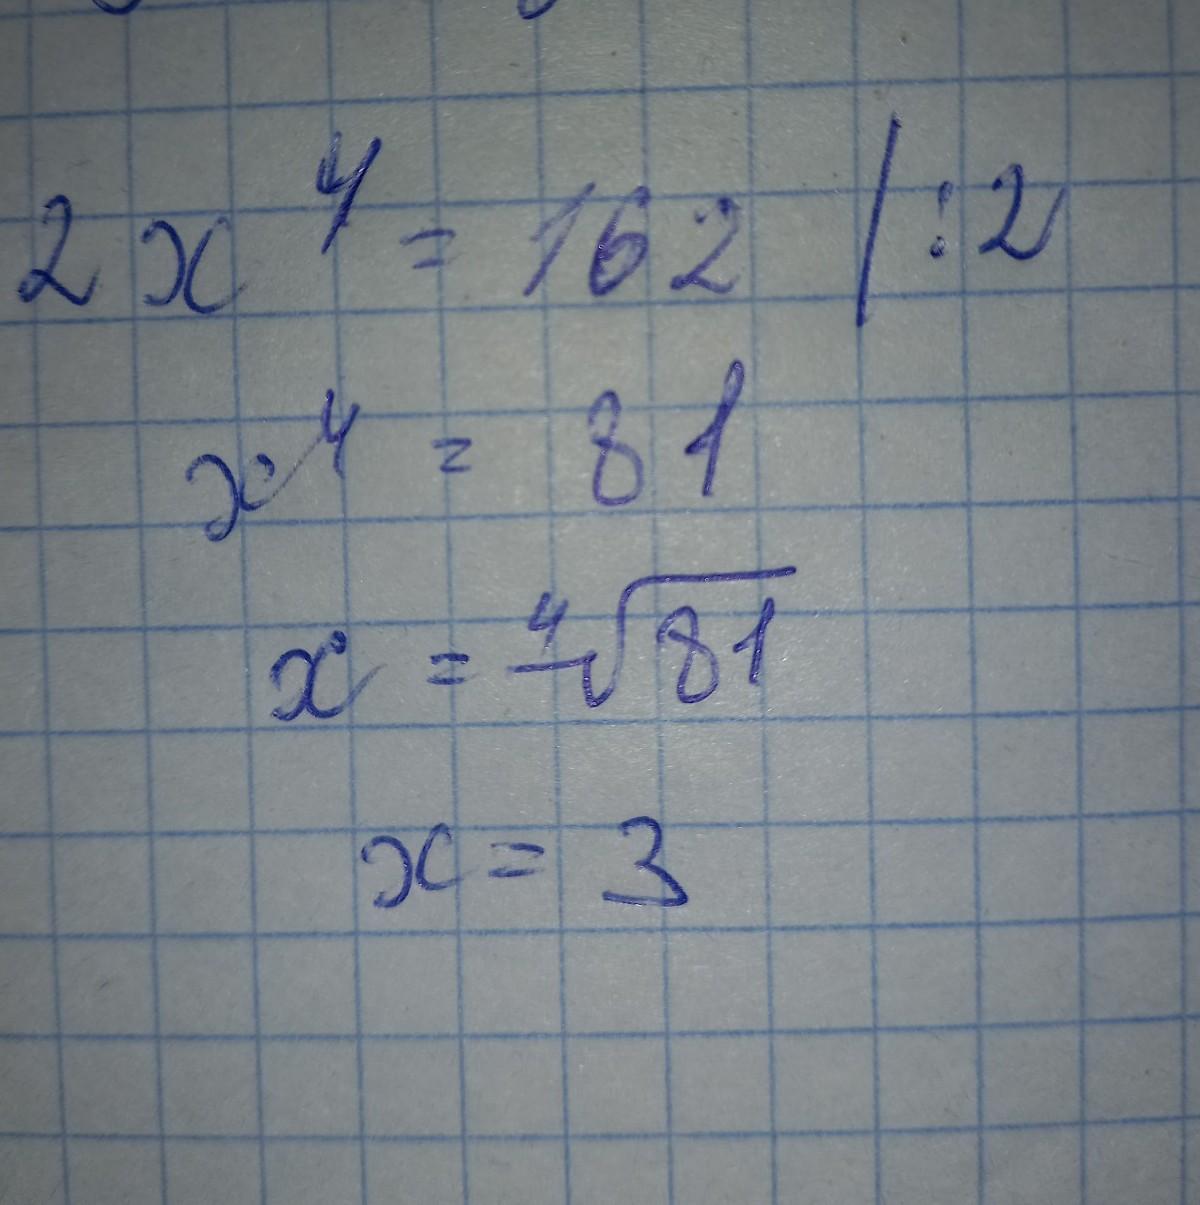 2x⁴ = 162 | : 2
x⁴ = 81
x = ⁴√81
x = 3